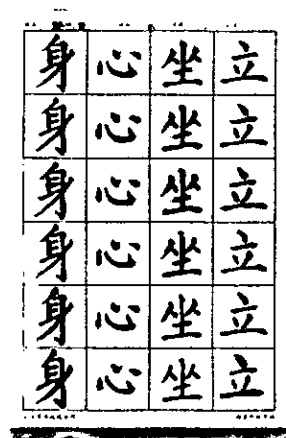 身心坐立
身心坐立
身心坐立
身心坐立
身心坐立
身心坐立